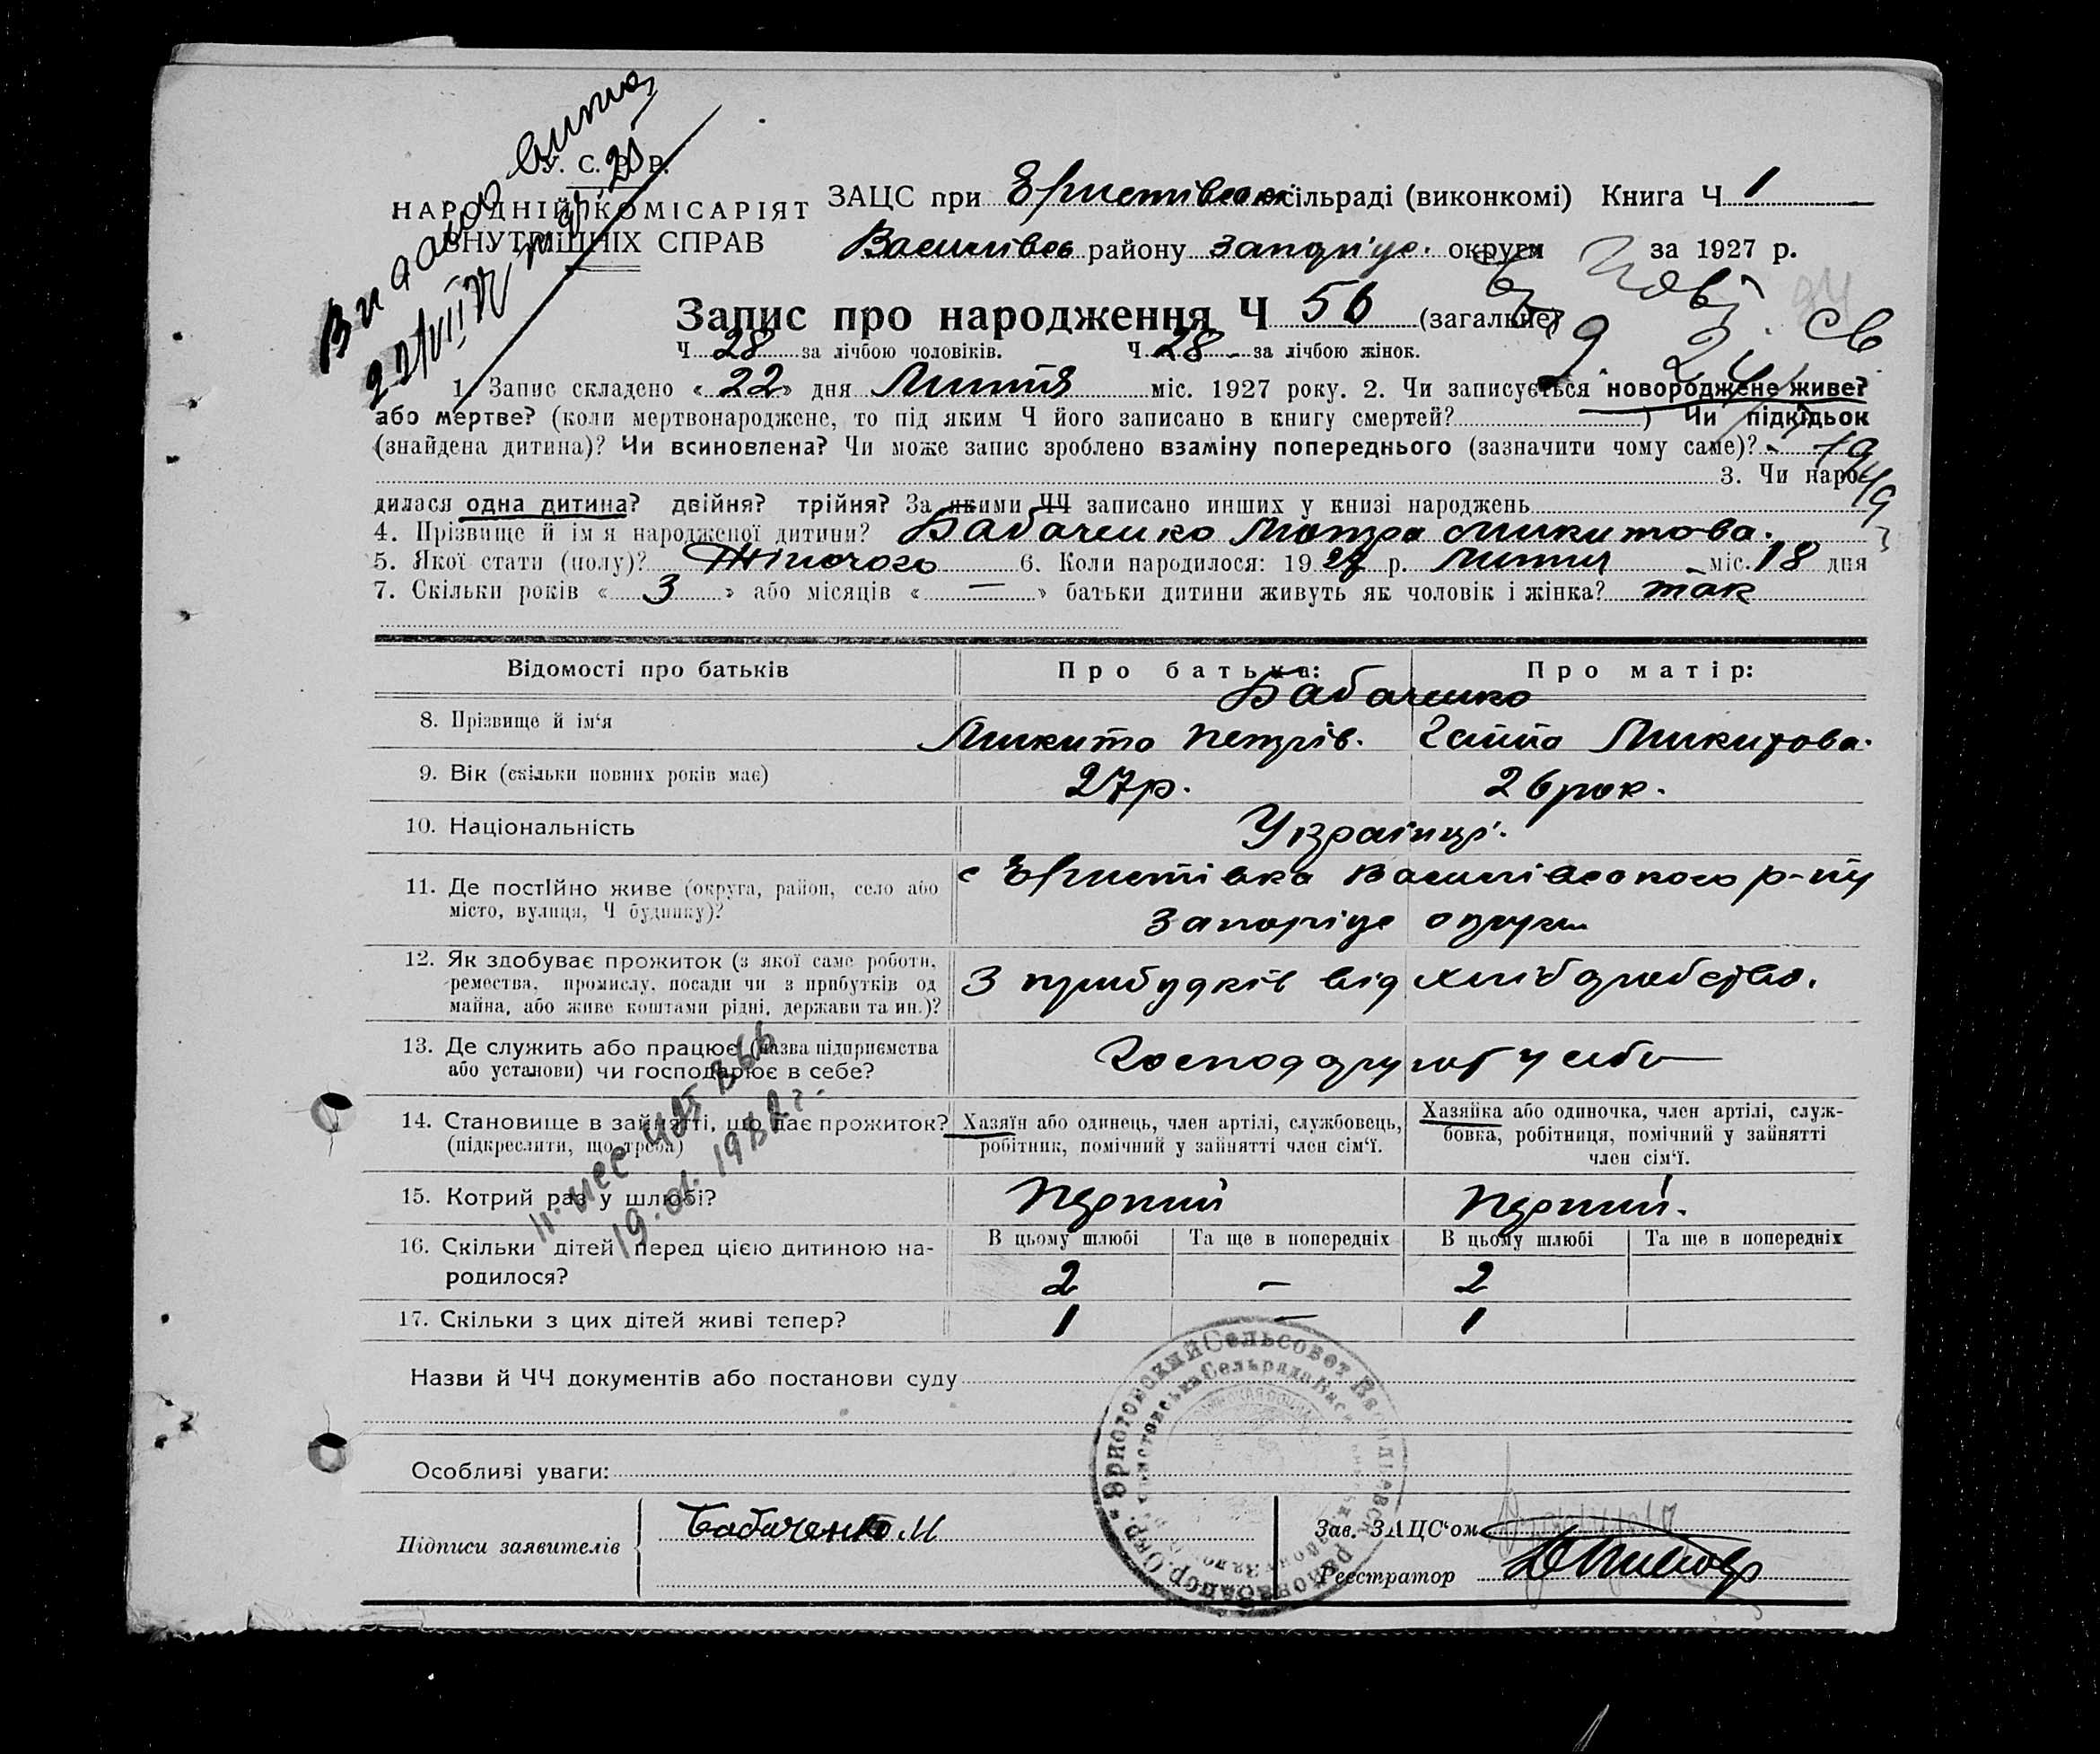 Видано виписку
22/VII 27 р. №21
У. С. Р. Р.
НАРОДНІЙ КОМІСАРІЯТ
ВНУТРІШНІХ СПРАВ
ЗАЦС при Еристівськ. сільраді (виконкомі) Книга Ч 1
Василівсь району Запоріз. округи за 1927 р.
Запис про народження Ч 56 (загальне)
Ч 28 за лічбою чоловіків. Ч 28 за лічбою жінок.
1. Запис складено «22» дня Липня міс. 1927 року. 2. Чи записується новороджене живе?
або мертве? (коли мертвонароджене, то під яким Ч його записано в книгу смертей? ) Чи підкідьок
(знайдена дитина)? Чи всиновлена? Чи може запис зроблено взаміну попереднього (зазначити чому саме)? -
3. Чи наро-
дилася одна дитина? двійня? трійня? За якими ЧЧ записано инших у книзі народжень
4. Прізвище й ім'я народженої дитини? Бабаченко Мотря Микитова.
5. Якої стати (полу)? Жіночого 6. Коли народилося: 1927 р. липня міс. 18 дня
7. Скільки років «3» або місяців «—» батьки дитини живуть як чоловік і жінка? так
Відомості про батьків Про батька: Про матір:
Бабаченко
8. Прізвище й ім‘я Микита Петрів. Ганна Микитова.
9. Вік (скільки повних років має) 27 р. 26 рок.
10. Національність Українці.
11. Де постійно живе (округа, район, село або с Еристівка Василівського р-ну
місто, вулиця, Ч будинку)? Запорізе округи
12. Як здобуває прожиток (з якої саме роботи,
ремества, промислу, посади чи з прибутків од З прибудків від хліборобства.
майна, або живе коштами рідні, держави та ин.)?
13. Де служить або працює (назва підприємства Господарують у себе
або установи) чи господарює в себе?
14. Становище в зайнятті, що дає прожиток? Хазяїн або одинець, член артілі, службовець, Хазяйка або одиночка, член артілі, служ-
(підкреслити, що треба) робітник, помічний у зайнятті член сім‘ї. бовка, робітниця, помічний у зайнятті
член сім‘ї.
15. Котрий раз у шлюбі? Перший Перший.
16. Скільки дітей перед цією дитиною на- В цьому шлюбі Та ще в попередніх В цьому шлюбі Та ще в попередніх
родилося? 2 – 2
17. Скільки з цих дітей живі тепер? 1 – 1
19.01.1982 г.
Назви й ЧЧ документів або постанови суду
Особливі уваги:
Підписи заявителів Бабаченко М
Зав. ЗАЦС‘ом
Реєстратор